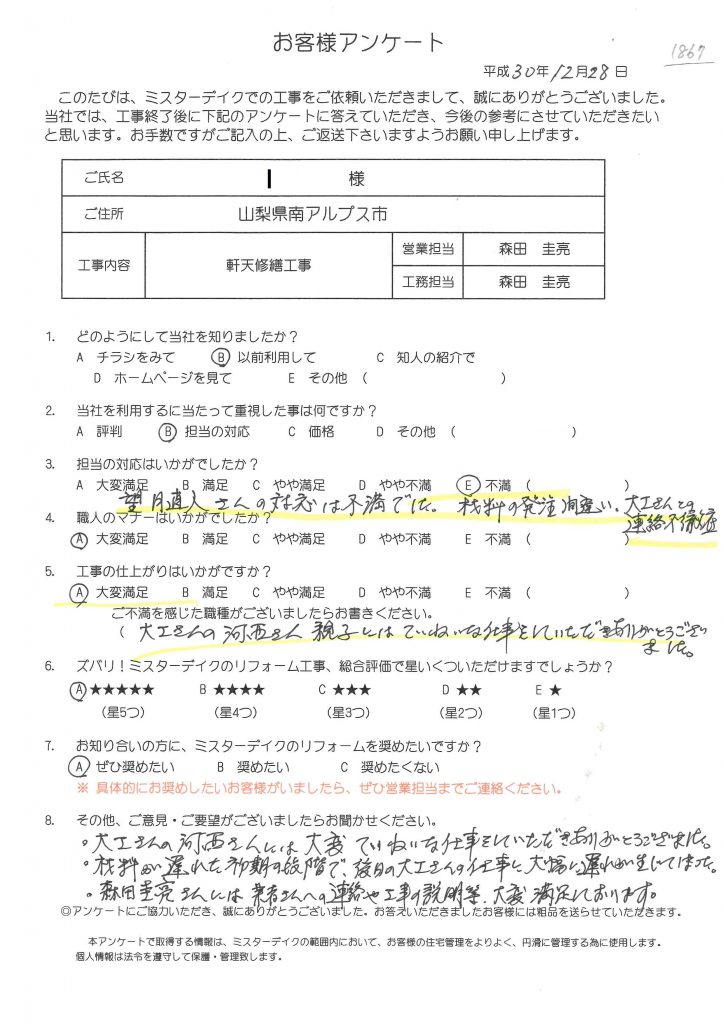 お客様アンケート
1867
平成30年12月28日
このたびは、ミスターデイクでの工事をご依頼いただきまして、誠にありがとうございました。
当社では、工事終了後に下記のアンケートに答えていただき、今後の参考にさせていただきたい
と思います。お手数ですがご記入の上、ご返送下さいますようお願い申し上げます。
ご氏名 様
ご住所 山梨県南アルプス市
工事内容 軒天修繕工事 営業担当 森田 圭亮
工務担当 森田 圭亮
1. どのようにして当社を知りましたか？
A チラシをみて B 以前利用して C 知人の紹介で
D ホームページを見て E その他 ( )
2. 当社を利用するに当たって重視した事は何ですか？
A 評判 B 担当の対応 C 価格 D その他 ( )
3. 担当の対応はいかがでしたか？
A 大変満足 B 満足 C やや満足 D やや不満 E 不満 ( )
望月直人さんの対応は不満でした。材料の発注間違い、大工さんとの
連絡不徹底
4. 職人のマナーはいかがでしたか？
A 大変満足 B 満足 C やや満足 D やや不満 E 不満 ( )
5. 工事の仕上がりはいかがですか？
A 大変満足 B 満足 C やや満足 D やや不満 E 不満 ( )
ご不満を感じた職種がございましたらお書きください。
( 大工さんの河西さん親子にはていねいな仕事をしていただきありがとうござい
ました。
6. ズバリ！ミスターデイクのリフォーム工事、総合評価で星いくついただけますでしょうか？
A ★★★★★ B ★★★★ C ★★★ D ★★ E ★
(星5つ) (星4つ) (星3つ) (星2つ) (星1つ)
7. お知り合いの方に、ミスターデイクのリフォームを奨めたいですか？
A ぜひ奨めたい B 奨めたい C 奨めたくない
※ 具体的にお奨めしたいお客様がいましたら、ぜひ営業担当までご連絡ください。
8. その他、ご意見・ご要望がございましたらお聞かせください。
・大工さんの河西さんには大変ていねいな仕事をしていただきありがとうございました。
・材料が遅れた初期の段階で、後日の大工さんの仕事に大幅に遅れが生じてしまった。
・森田圭亮さんには業者さんへの連絡や工事の説明等、大変満足しております。
◎アンケートにご協力いただき、誠にありがとうございました。お答えいただきましたお客様には粗品を送らせていただきます。
本アンケートで取得する情報は、ミスターデイクの範囲内において、お客様の住宅管理をよりよく、円滑に管理する為に使用します。
個人情報は法令を遵守して保護・管理致します。